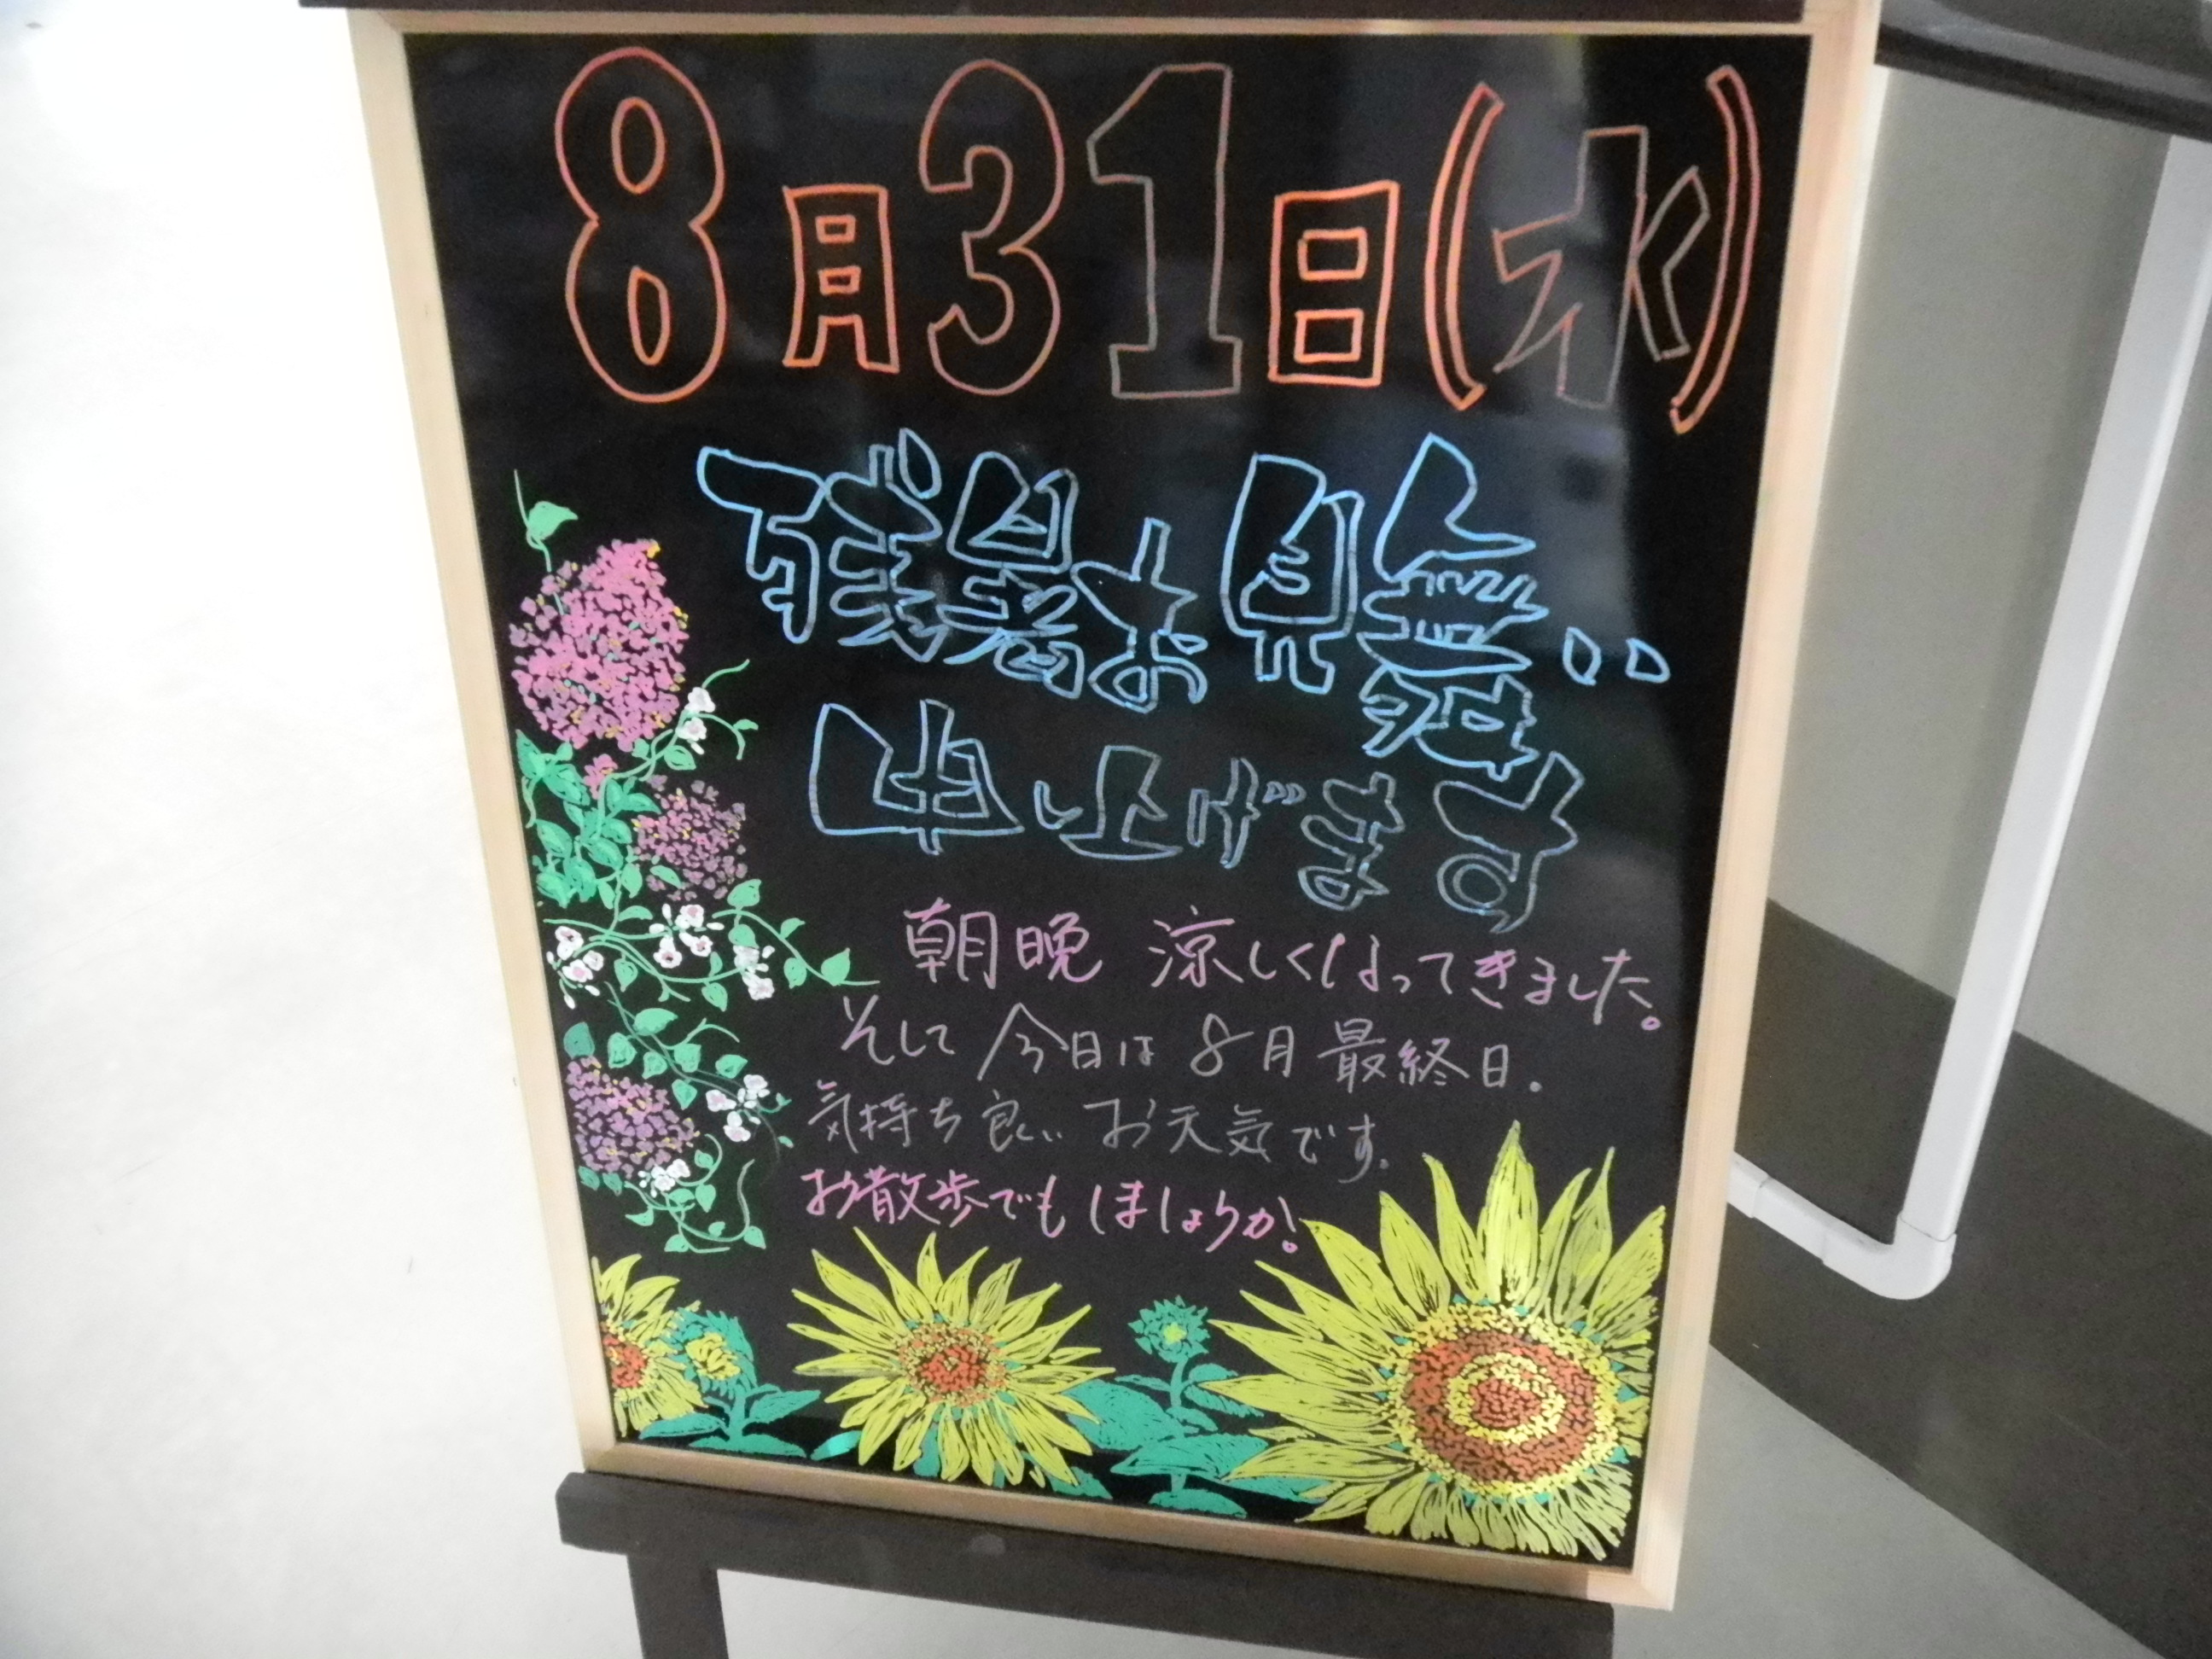 8月31日(水)
残暑お見舞い
申し上げます
朝晩 涼しくなってきました。
そして 今日は 8月 最終日。
気持ち良い お天気です。
お散歩でも しましょうか!